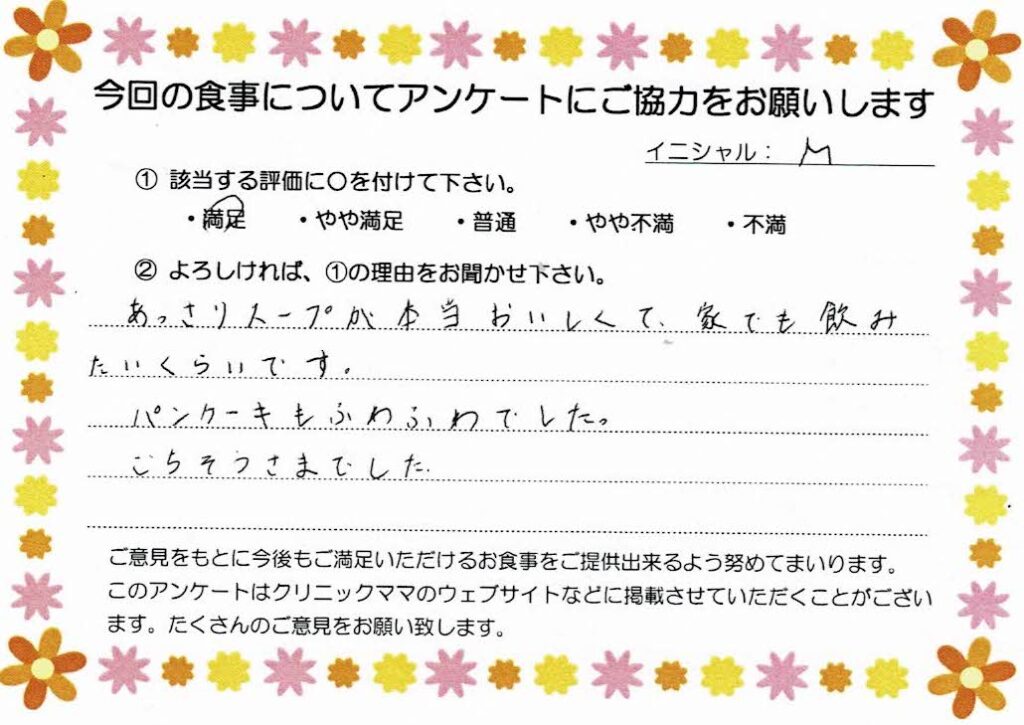 今回の食事についてアンケートにご協力をお願いします
イニシャル： M
① 該当する評価に〇を付けて下さい。
・満足 ・やや満足 ・普通 ・やや不満 ・不満
② よろしければ、①の理由をお聞かせ下さい。
あっさりスープが本当おいしくて、家でも飲み
たいくらいです。
パンケーキもふわふわでした。
ごちそうさまでした.
ご意見をもとに今後もご満足いただけるお食事をご提供出来るよう努めてまいります。
このアンケートはクリニックママのウェブサイトなどに掲載させていただくことがござい
ます。たくさんのご意見をお願い致します。